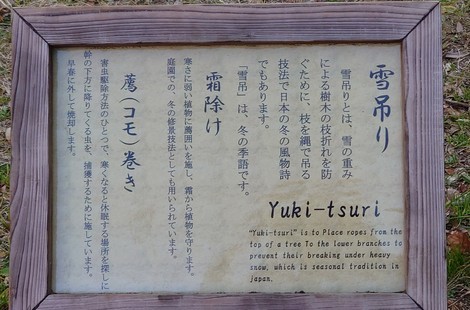 雪吊り
雪吊りとは、雪の重み
による樹木の枝折れを防
ぐために、枝を縄で吊る
技法で日本の冬の風物詩
でもあります。
「雪吊」は、冬の季語です。
Yuki-tsuri
"Yuki-tsuri" is to Place ropes from the
top of a tree To the lower branches to
prevent their breaking under heavy
snow, which is seasonal tradition in
japan.
霜除け
寒さに弱い植物に薦囲いを施し、霜から植物を守ります。
庭園での、冬の修景技法としても用いられています。
薦(コモ)巻き
害虫駆除方法のひとつで、寒くなると休眠する場所を探しに
幹の下方に降りてくる虫を、捕獲するために施しています。
早春に外して焼却します。